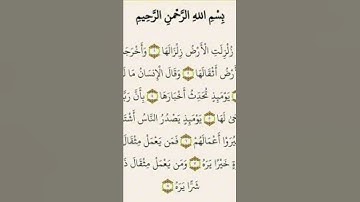 بِسْمِ اللهِ الرَّحْمٰنِ الرَّحِيمِ
زُلْزِلَتِ الْأَرْضُ زِلْزَالَهَا ۝ وَأَخْرَجَ
رْضُ أَثْقَالَهَا ۝ وَقَالَ الْإِنسَانُ مَا لَ
يَوْمَئِذٍ تُحَدِّثُ أَخْبَارَهَا ۝ بِأَنَّ رَبَّ
حَىٰ لَهَا ۝ يَوْمَئِذٍ يَصْدُرُ النَّاسُ أَشْتَ
يُرَوْا أَعْمَالَهُمْ ۝ فَمَن يَعْمَلْ مِثْقَالَ
ةٍ خَيْرًا يَرَهُ ۝ وَمَن يَعْمَلْ مِثْقَالَ ذَ
شَرًّا يَرَهُ ۝